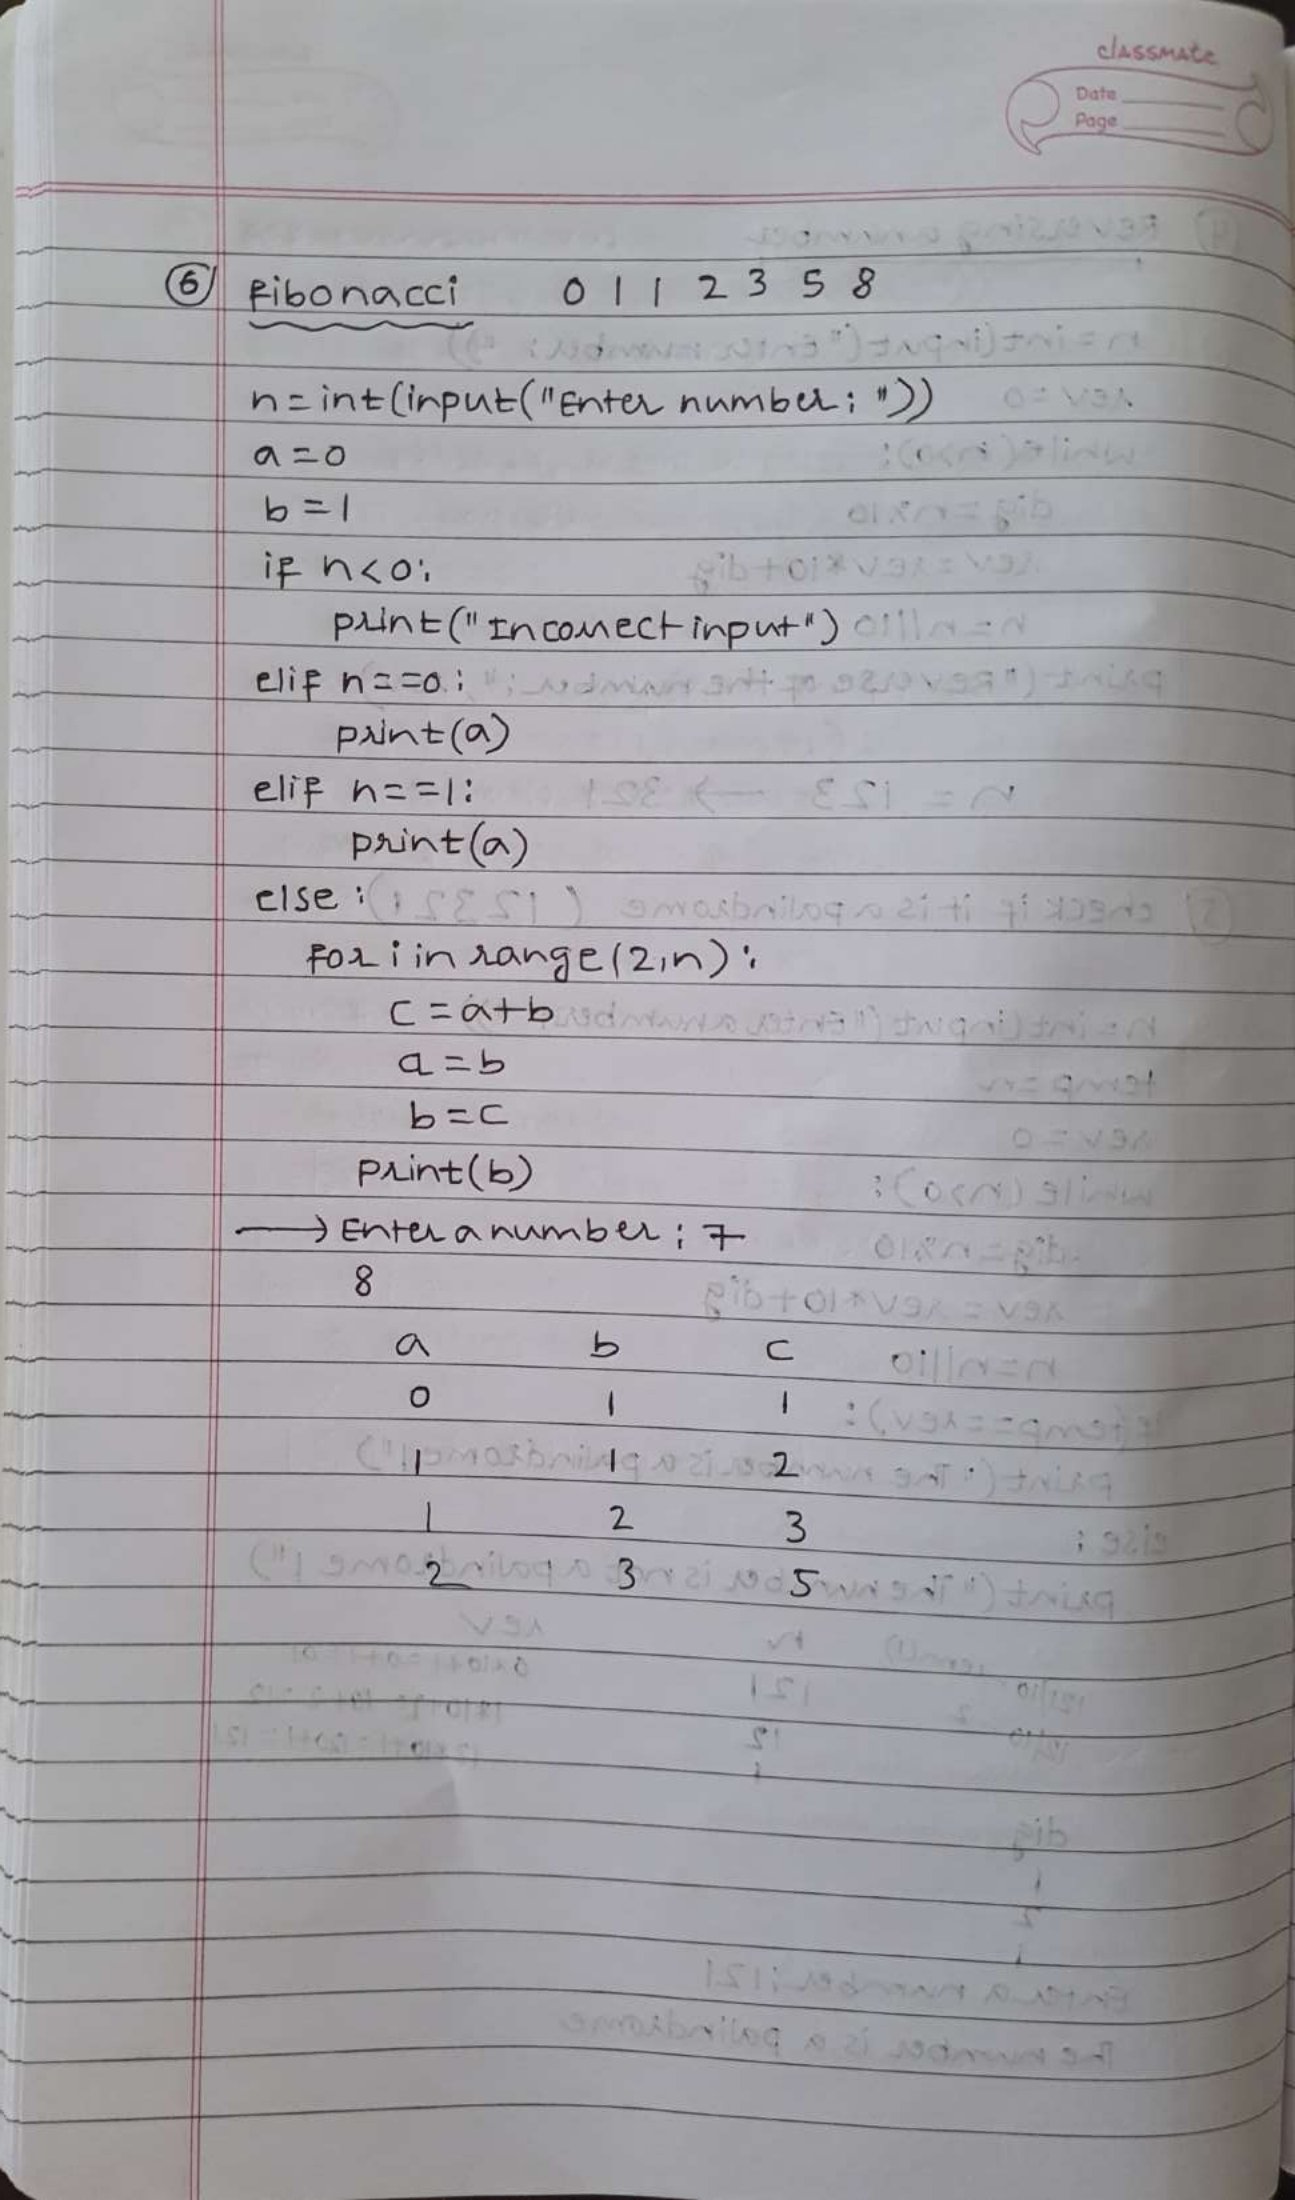 classmate
Date
Page
⑥ Fibonacci 0 1 1 2 3 5 8
n=int(input("Enter number: "))
a=0
b=1
if n<0:
print("Incorrect input")
elif n==0:
print(a)
elif n==1:
print(a)
else:
for i in range(2,n):
c=a+b
a=b
b=c
print(b)
→ Enter a number: 7
8
a b c
0 1 1
1 1 2
1 2 3
2 3 5